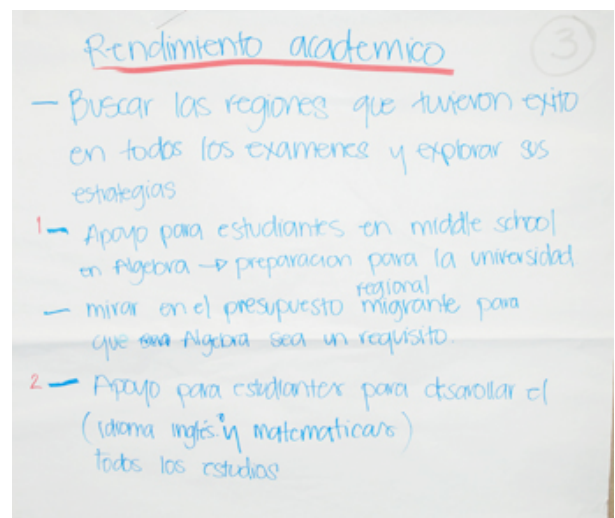 Rendimiento academico
3
— Buscar las regiones que tuvieron exito
en todos los examenes y explorar sus
estrategias
1 — Apoyo para estudiantes en middle school
en Algebra → preparacion para la universidad
regional
— mirar en el presupuesto migrante para
que Algebra sea un requisito.
2 — Apoyo para estudiantes para desarollar el
(idioma inglés y matematicas)
todos los estudios